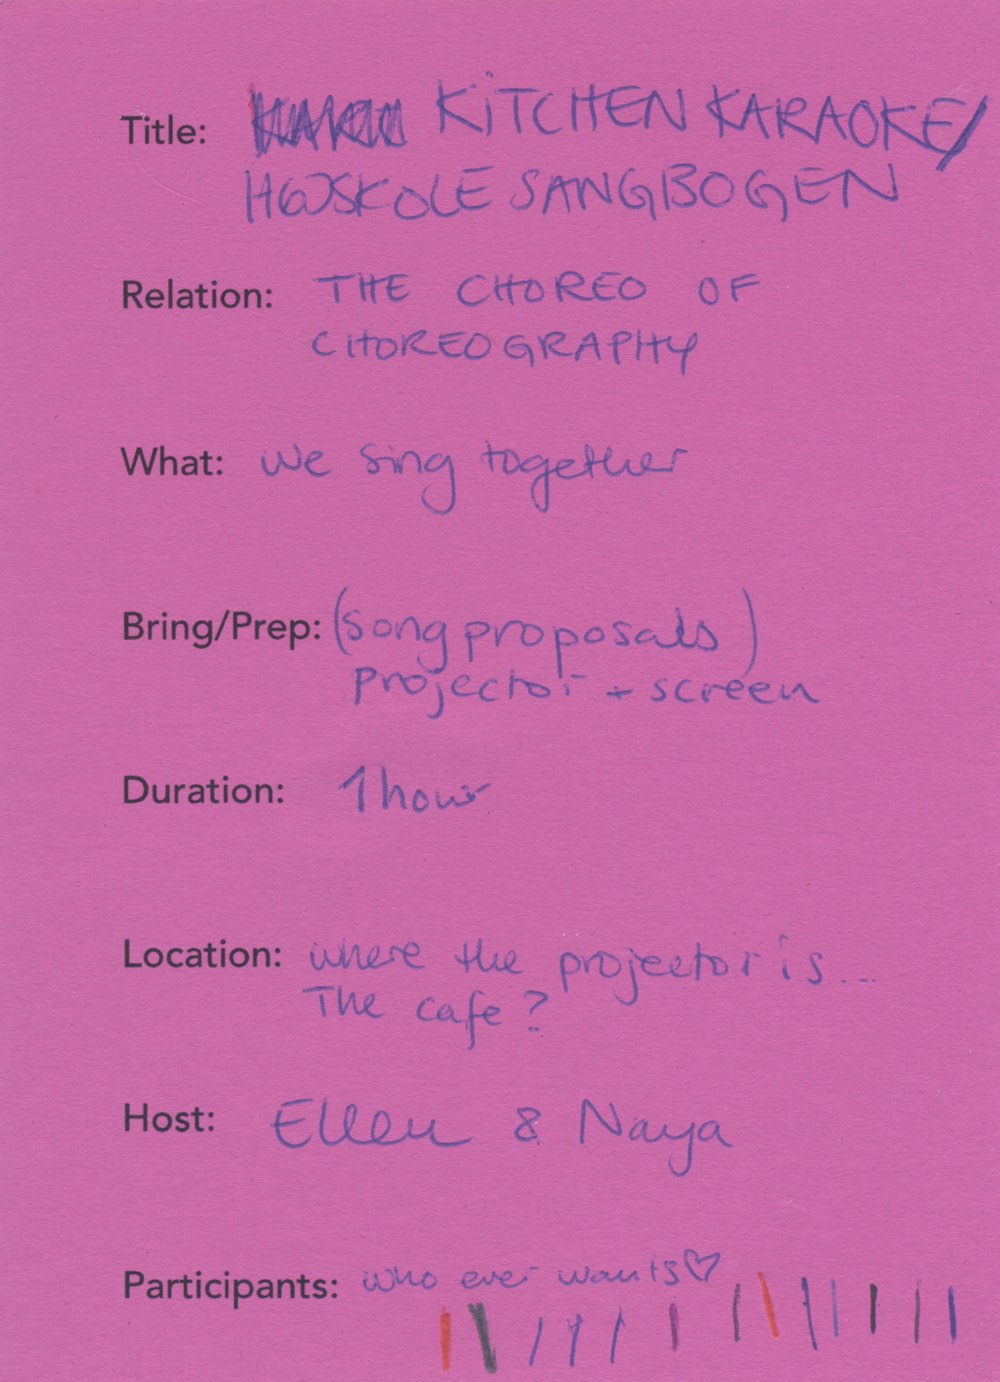 Title: KiTCHEN KARAOKE/
HØJSKOLE SANGBOGEN
Relation: THE CHOREO OF
CHOREOGRAPHY
What: we sing together
Bring/Prep: (song proposals)
projector + screen
Duration: 1 hour
Location: where the projector is...
The cafe?
Host: Ellen & Naya
Participants: who ever wants♡